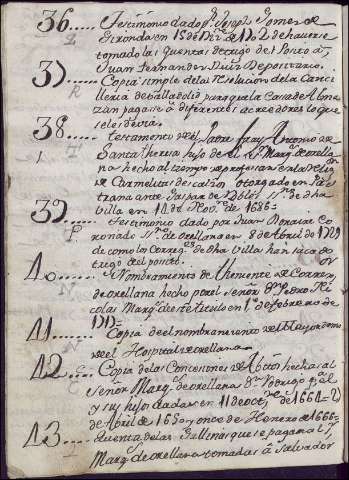 36..... Testimonio dado pr. Joseph Gomez de
Gironda en 15 de Dizre. de 1702 de haverse
tomado las quentas de trigo del Posito á
Juan Fernandez Diaz Depositario.
37..... Copia simple de la Resolucion de la Canci
lleria de Valladolid para que la Casa de Alme
zan pagase á diferentes acreedores lo que
se les devia.
38..... testamento del Padre fray Antonio de
Santa theresa hijo de el Sr. Marqs. de orella
na hecho al tiempo de profesar en la Religon.
de Carmelitas descalzos otorgado en Pas
trana ante Gaspar de Robles ssno. de dha
villa en 14 de Novre. de 1686=
39..... Testimonio dado por Juan Co
ronado ssno. de orellana en 8 de Abril de 1729
de como los Corregres. de dha Villa han sacado
trigo del posito.
40..... Nombramiento de theniente de Corregr.
de orellana hecho por el señor Dn. Pedro Ni
colas Marqs. de este titulo en 1º de febrero de
1717=
41..... Copia de el nombramiento de Mayordomo
de el Hospital de orellana.
42..... Copia de las Concesiones de hechas al
señor Marqs. de orellana Dn. Rodrigo
y su hijo dadas en 11 de octre. de 1664=2
de Abril de 1650 y once de Henero de 1666=
43.... quenta de las Gallinas que se pagan al
Marqs. de orellana tomadas á Salvador